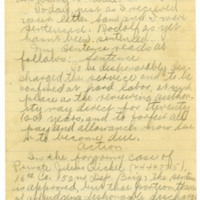 Today just as I received
your letter, Joe and I were
sentenced.
hasn't been sentenced.
My Sentence reads as
follows: Sentence
To be dishonorably dis-
charged the service and to be
confined at hard labor, at such
place as the reviewing author-
ity may direct for twenty
(20) years, and to forfeit all
pay and allowances now due
or to become due.
Action
In the foregoing case of
Private
16th Co. 152nd Dep. Brig. the sentence
is approved, but that portion there-
of adjudging dishonorable discharge